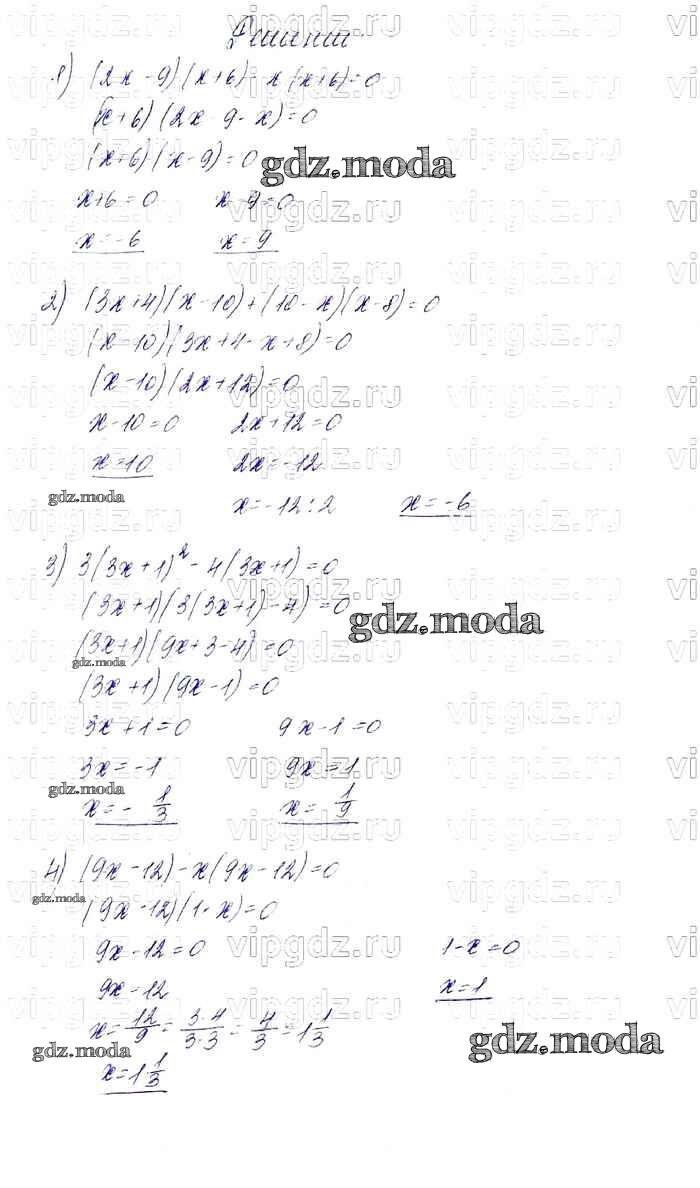 Решение
1) (2x - 9)(x+6) - x(x+6) = 0
(x+6)(2x - 9 - x) = 0
(x+6)(x - 9) = 0
gdz.moda
x+6 = 0 x - 9 = 0
x = -6 x = 9
2) (3x+4)(x-10)+(10-x)(x-8)=0
(x-10)(3x+4-x+8)=0
(x-10)(2x+12)=0
x-10=0 2x+12=0
x=10 2x=-12
gdz.moda
x=-12:2 x=-6
3) 3(3x+1)² - 4(3x+1)=0
(3x+1)(3(3x+1)-4)=0
gdz.moda
(3x+1)(9x+3-4)=0
gdz.moda
(3x+1)(9x-1)=0
3x+1=0 9x-1=0
3x=-1 9x=1
gdz.moda
x=-1/3 x=-1/9
4) (9x-12)-x(9x-12)=0
gdz.moda
(9x-12)(1-x)=0
9x-12=0 1-x=0
9x-12 x=1
x=12/9=3·4/3·3=4/3=1 1/3
gdz.moda
gdz.moda
x=1 1/3
vipgdz.ru